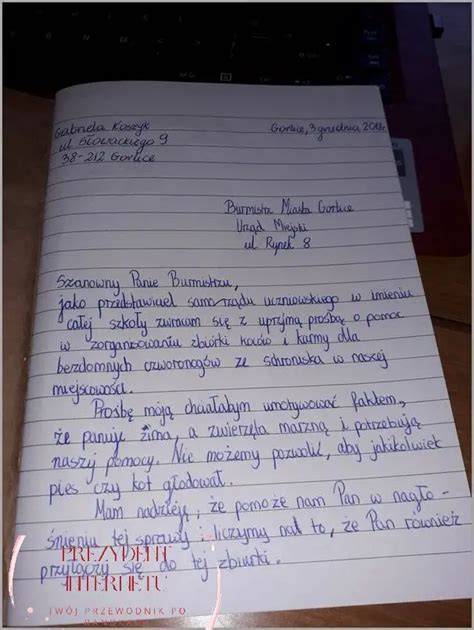 Gabriela Koszyk
ul Słowackiego 9
38-212 Gorlice
Gorlice, 3 grudnia
Burmistrz Miasta Gorlice
Urząd Miejski
ul Rynek 8
Szanowny Panie Burmistrzu,
jako przedstawiciel samorządu uczniowskiego w imieniu
całej szkoły zwracam się z uprzejmą prośbą o pomoc
w zorganizowaniu zbiórki koców i karmy dla
bezdomnych czworonogów ze schroniska w naszej
miejscowości.
Prośbę moją chciałabym umotywować faktem,
że panuje zima, a zwierzęta marzną i potrzebują
naszej pomocy. Nie możemy pozwolić, aby jakikolwiek
pies czy kot głodował.
Mam nadzieję, że pomoże nam Pan w nagło-
śnieniu tej sprawy i liczymy na to, że Pan również
przyłączy się do tej zbiórki.
PREZYDENT
INTERNETU
TWÓJ PRZEWODNIK PO